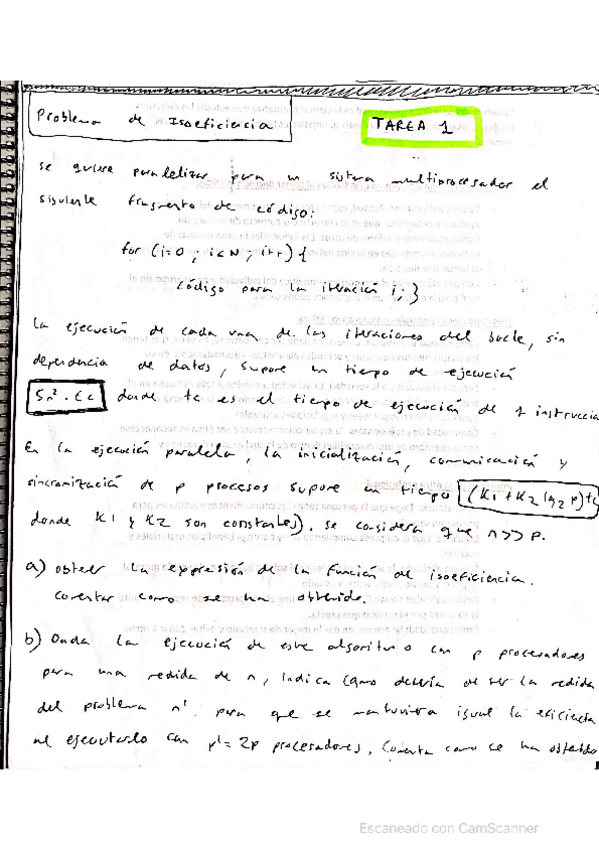 Problema de Isoeficiencia
TAREA 1
se quiere paralelizar para un sistema multiprocesador el
siguiente fragmento de código:
for (i=0 ; i<N ; i++) {
código para la iteración i; }
La ejecución de cada una de las iteraciones del bucle, sin
dependencia de datos, supone un tiempo de ejecución
5n². tc donde tc es el tiempo de ejecución de 1 instrucción
En la ejecución paralela, la inicialización, comunicación y
sincronización de p procesos supone un tiempo (K1 + K2 log2 p) tc
donde K1 y K2 son constantes). se considera que n>> p.
a) obtener la expresión de la función de isoeficiencia.
comentar como se ha obtenido.
b) Dada la ejecución de este algoritmo con p procesadores
para una medida de n, indica como debería de ser la medida
del problema n' para que se mantuviera igual la eficiencia
al ejecutarlo con p'= 2p procesadores. Comenta como se ha obtenido
Escaneado con CamScanner